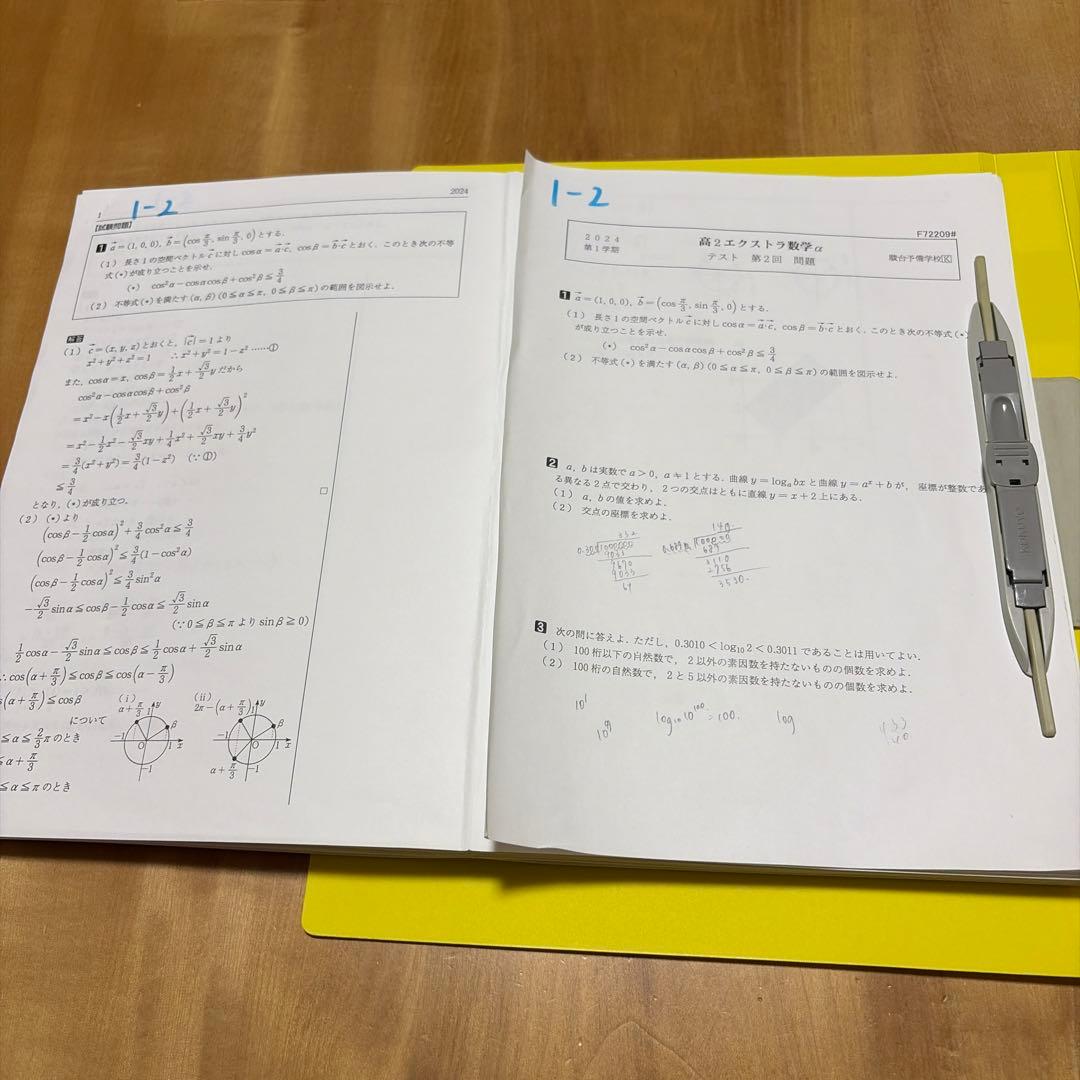 1
1-2
2024
【試験問題】
1 a⃗=(1, 0, 0), b⃗=(cos π/3, sin π/3, 0)とする.
(1) 長さ1の空間ベクトルc⃗に対しcosα=a⃗·c⃗, cosβ=b⃗·c⃗とおく, このとき次の不等
式(*)が成り立つことを示せ.
(*) cos²α−cosαcosβ+cos²β≦3/4
(2) 不等式(*)を満たす(α, β)(0≦α≦π, 0≦β≦π)の範囲を図示せよ.
解答
(1) c⃗=(x, y, z)とおくと, |c⃗|=1より
x²+y²+z²=1 ∴x²+y²=1−z² ……①
また, cosα=x, cosβ=1/2x+√3/2yだから
cos²α−cosαcosβ+cos²β
=x²−x(1/2x+√3/2y)+(1/2x+√3/2y)²
=x²−1/2x²−√3/2xy+1/4x²+√3/2xy+3/4y²
=3/4(x²+y²)=3/4(1−z²) (∵①)
≦3/4
となり, (*)が成り立つ.
□
(2) (*)より
(cosβ−1/2cosα)²+3/4cos²α≦3/4
(cosβ−1/2cosα)²≦3/4(1−cos²α)
(cosβ−1/2cosα)²≦3/4sin²α
−√3/2sinα≦cosβ−1/2cosα≦√3/2sinα
(∵0≦β≦πよりsinβ≧0)
1/2cosα−√3/2sinα≦cosβ≦1/2cosα+√3/2sinα
∴cos(α+π/3)≦cosβ≦cos(α−π/3)
(α+π/3)≦cosβ
について
≦α≦2/3πのとき
≦α+π/3
≦α≦πのとき
(i)
α+π/3 1 y
β
−1 O 1 x
−1
(ii)
2π−(α+π/3) 1 y
β
−1 O 1 x
α+π/3
−1
1-2
F72209#
2024
第1学期
高2エクストラ数学α
テスト 第2回 問題
駿台予備学校K
1 a⃗=(1, 0, 0), b⃗=(cos π/3, sin π/3, 0)とする.
(1) 長さ1の空間ベクトルc⃗に対しcosα=a⃗·c⃗, cosβ=b⃗·c⃗とおく, このとき次の不等式(*)
が成り立つことを示せ.
(*) cos²α−cosαcosβ+cos²β≦3/4
(2) 不等式(*)を満たす(α, β)(0≦α≦π, 0≦β≦π)の範囲を図示せよ.
2 a, bは実数でa>0, a≠1とする. 曲線y=logₐbxと曲線y=aˣ+bが, 座標が整数であ
る異なる2点で交わり, 2つの交点はともに直線y=x+2上にある.
(1) a, bの値を求めよ.
(2) 交点の座標を求めよ.
332
1000000
9033
9670
9033
64
140.
689
3110
2756
3530.
3 次の問に答えよ. ただし, 0.3010<log₁₀2<0.3011であることは用いてよい.
(1) 100桁以下の自然数で, 2以外の素因数を持たないものの個数を求めよ.
(2) 100桁の自然数で, 2と5以外の素因数を持たないものの個数を求めよ.
10¹
log₁₀10¹⁰⁰=100.
log